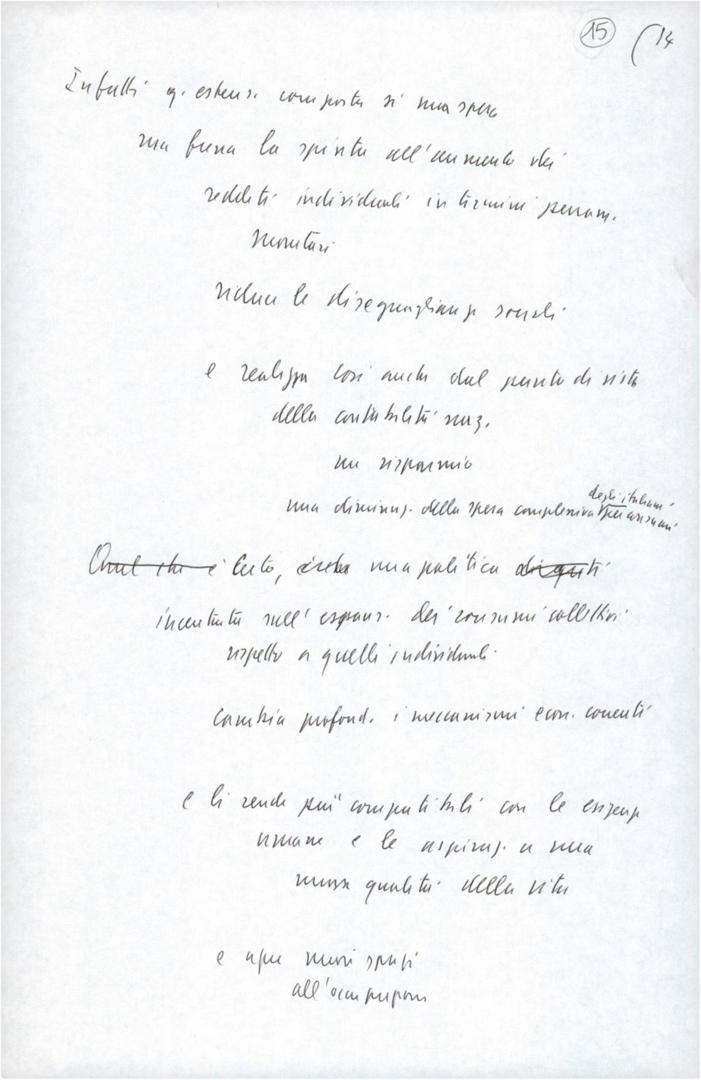 15 (14
Infatti q. estens. comporta sì una spesa
ma frena la spinta all'aumento dei
redditi individuali in termini param.
monetari
riduce le diseguaglianze sociali
e realizza così anche dal punto di vista
della contabilità naz.
un risparmio
degli italiani
una diminuz. della spesa complessiva per consumi
Quel che è certo, è che una politica di questi
incentrata sull'espans. dei consumi collettivi
rispetto a quelli individuali
cambia profond. i meccanismi econ. correnti
e li rende più compatibili con le esigenze
umane e le aspiraz. a una
nuova qualità della vita
e apre nuovi spazi
all'occupazione